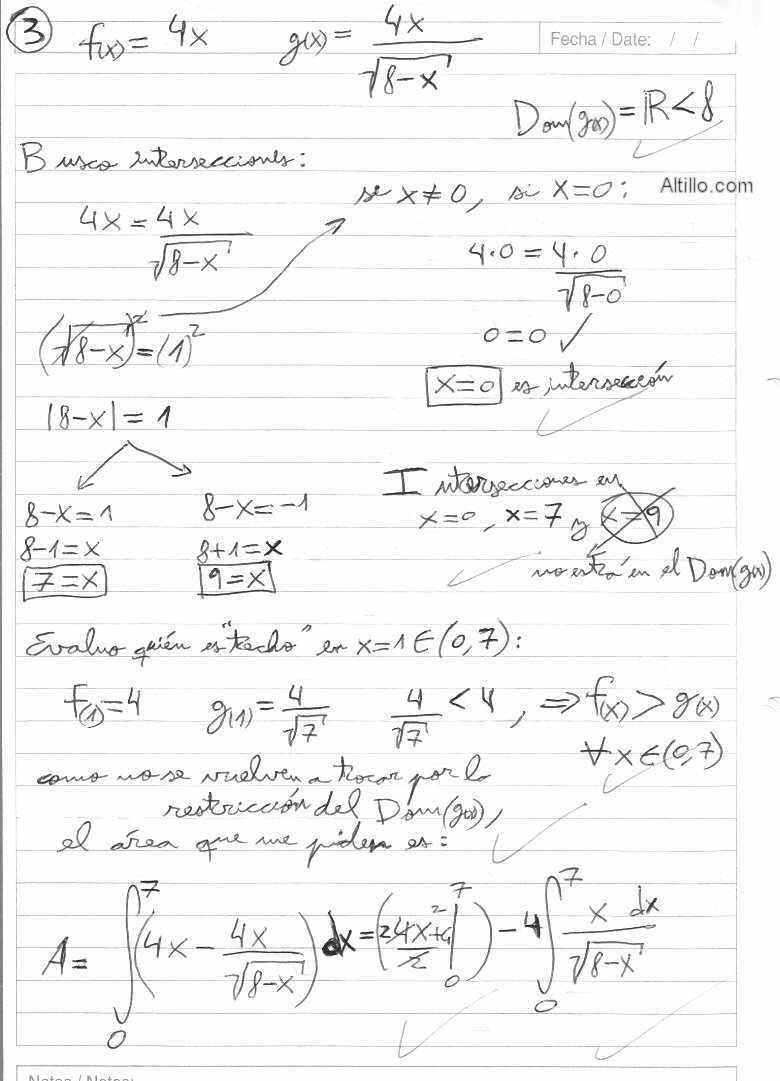 3 f(x) = 4x g(x) = 4x / √(8-x)
Fecha / Date: / /
Dom(g(x)) = ℝ < 8
Busco intersecciones:
Altillo.com
4x = 4x / √(8-x)
si x ≠ 0, si x = 0:
4·0 = 4·0 / √(8-0)
(√(8-x))² = (1)²
0 = 0 ✓
x = 0 es intersección
|8-x| = 1
8-x = 1 8-x = -1
8-1 = x 8+1 = x
7 = x 9 = x
Intersecciones en
x=0, x=7 y x=9
no está en el Dom(g(x))
Evaluo quién es "techo" en x=1 ∈ (0,7):
f(1) = 4 g(1) = 4/√7 4/√7 < 4, ⇒ f(x) > g(x)
∀ x ∈ (0,7)
como no se vuelven a tocar por la
restricción del Dom(g(x)),
el área que me piden es:
A = ∫₀⁷ (4x - 4x/√(8-x)) dx = ( 4x²/2 |₀⁷ ) - 4 ∫₀⁷ x dx / √(8-x)